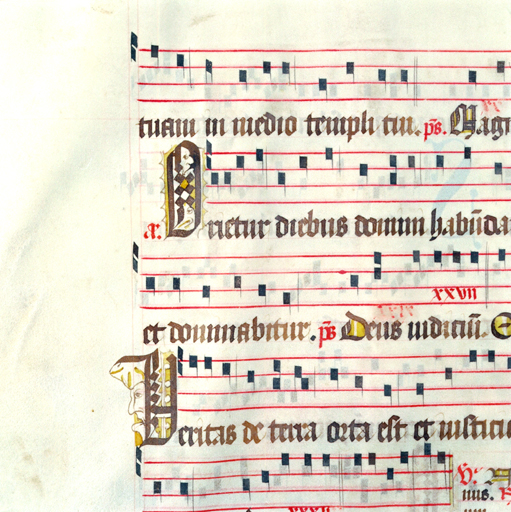 tuam in medio templi tui. ps. Mag
a. Orietur diebus domini habūda
xxvii
et dominabitur. ps Deus iudiciū.
Veritas de terra orta est et iusticia